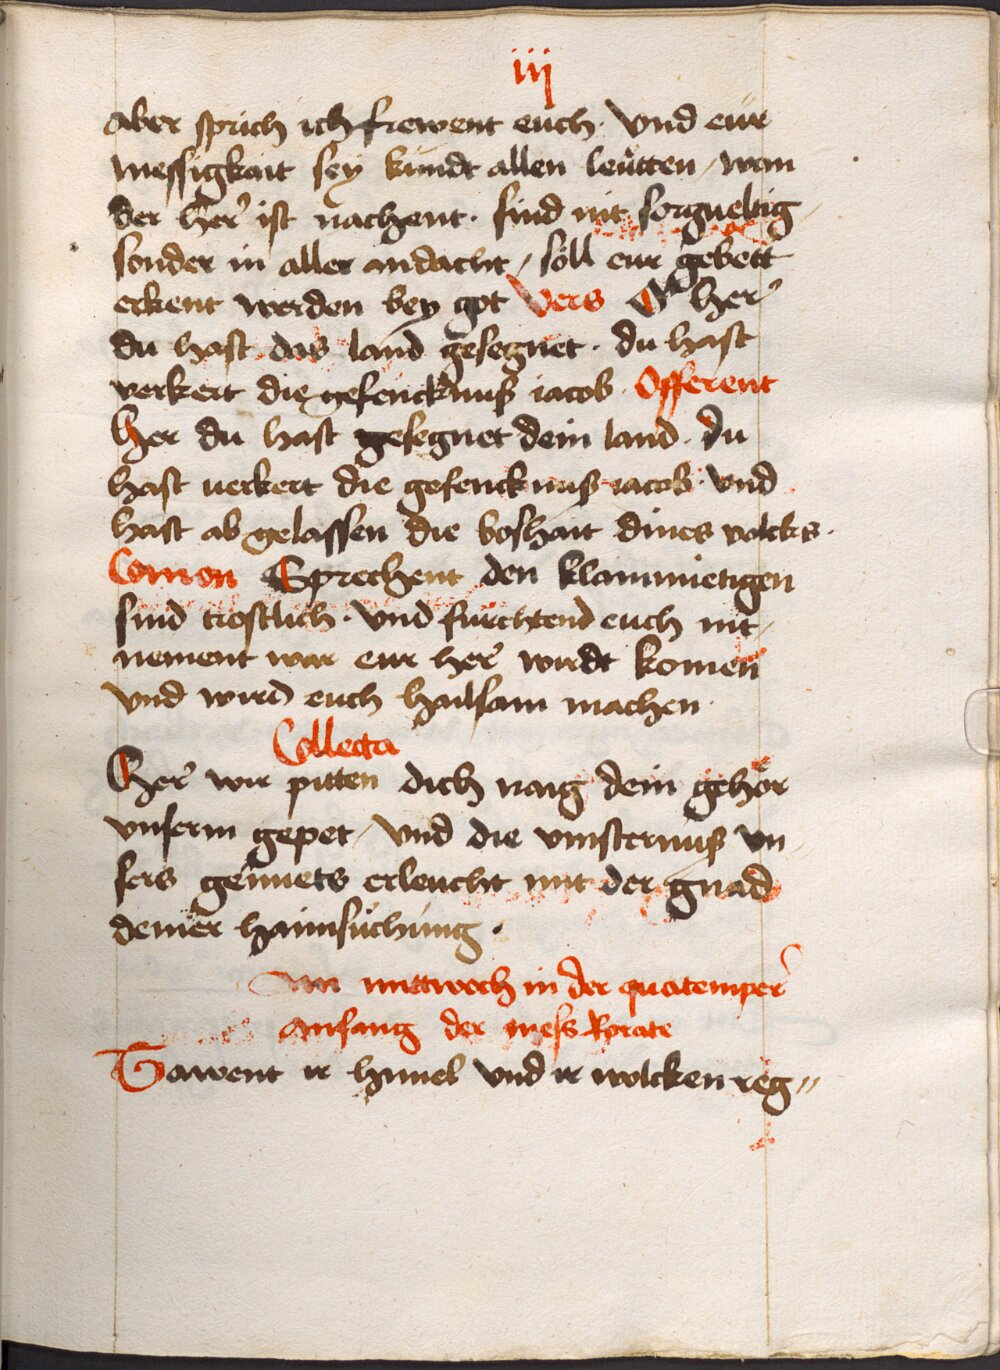 iij
aber sprich ich frewent euch · Vnd eur
messigkait sey kundt allen leütten / wan
der her ist nachent · sind nit sorgueltig /
sonder in aller andacht / söll eur gebett
erkent werden bey got Vers O her
du hast das land gesegnet · du hast
verkert die gefencknuß iacob · Offerent
Her du hast gesegnet dein land · du
hast uerkert die gefencknuß iacob · Vnd
hast ab gelassen die boshait dines volcks ·
Comon Sprechent den klainmietigen
sind trostlich · Vnd fürchtend euch nit /
nement war eur her wirdt komen
Vnd wird euch hailsam machen ·
Collecta
Her wir pitten dich naig dein gehör
vnserm gepet / Vnd die vinsternuß vn /
sers gemuets erleucht mit der gnad
deiner haimsüchung ·
Am mittwoch in der quatemper
Anfang der mess Rorate
Tawent ir himel Vnd ir wolcken reg //